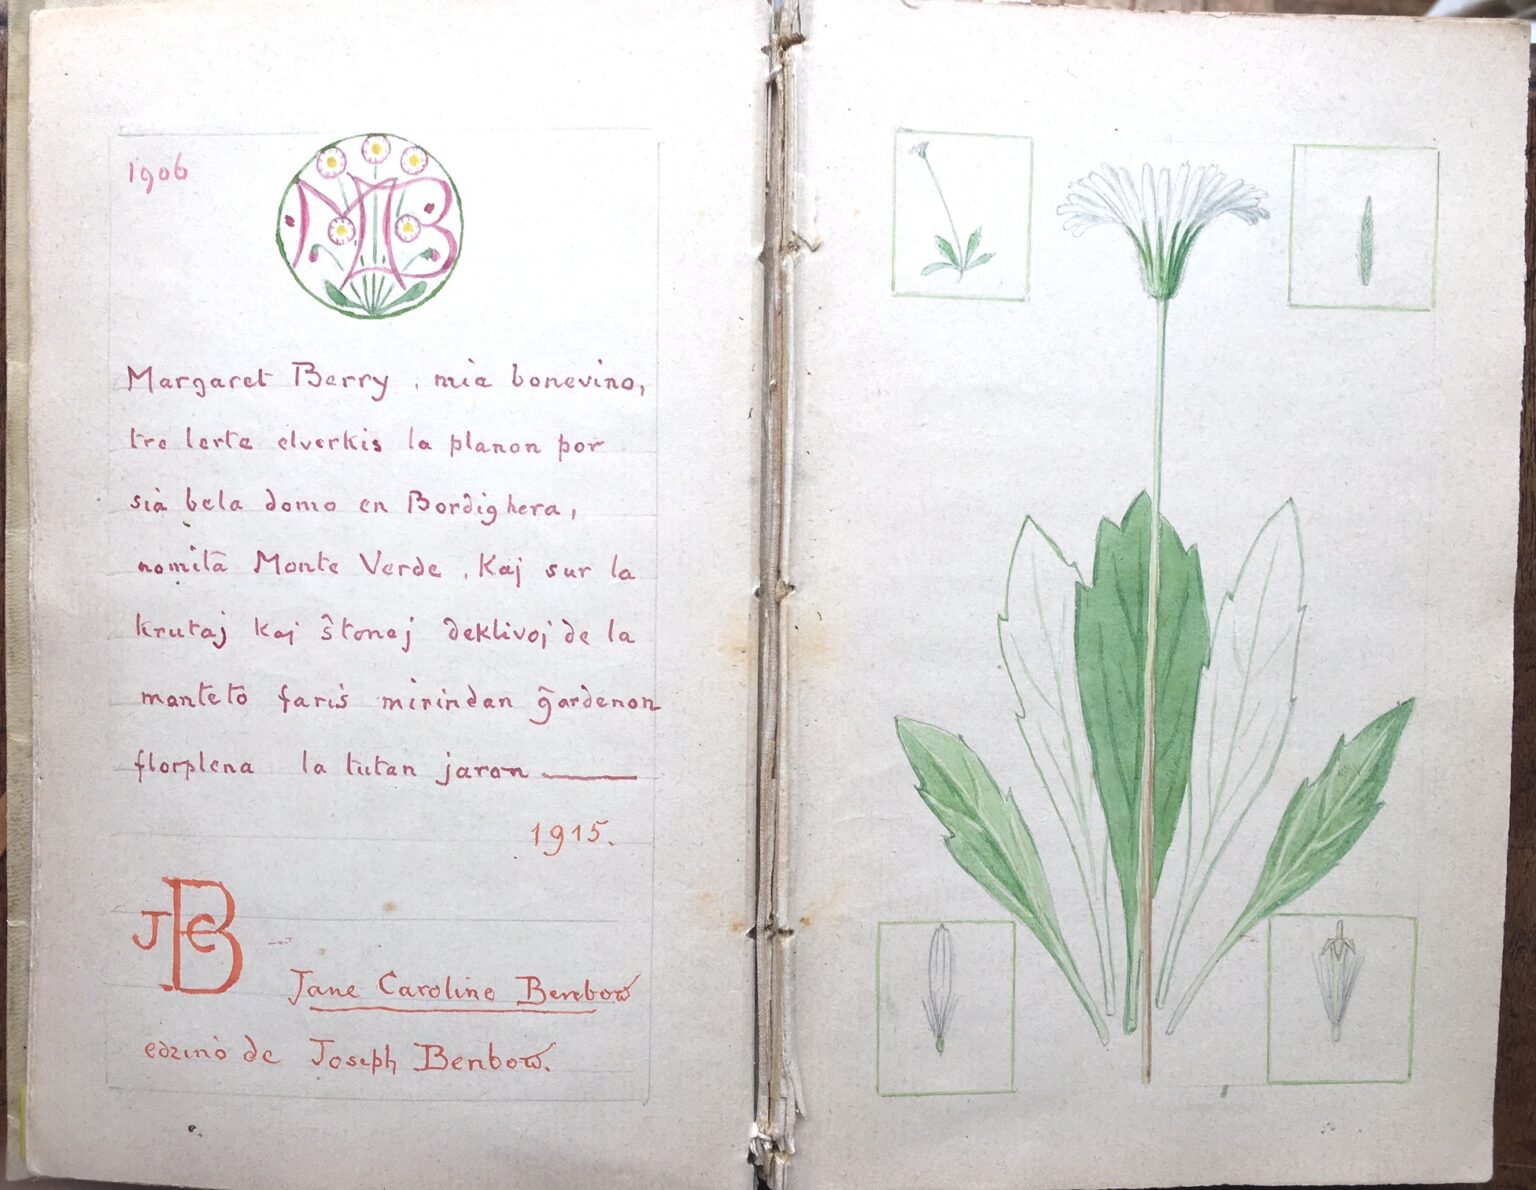 1906
MB
Margaret Berry, mia bonevino,
tre lerte elverkis la planon por
sia bela domo en Bordighera,
nomita Monte Verde, Kaj sur la
krutaj kaj ŝtonaj deklivoj de la
monteto faris mirindan ĝardenon
florplena la tutan jaron
1915.
JCB
Jane Caroline Benbow
edzino de Joseph Benbow.